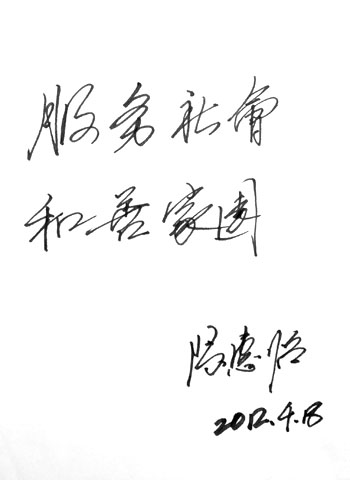 服务社會
和善家园
德
2012.4.18